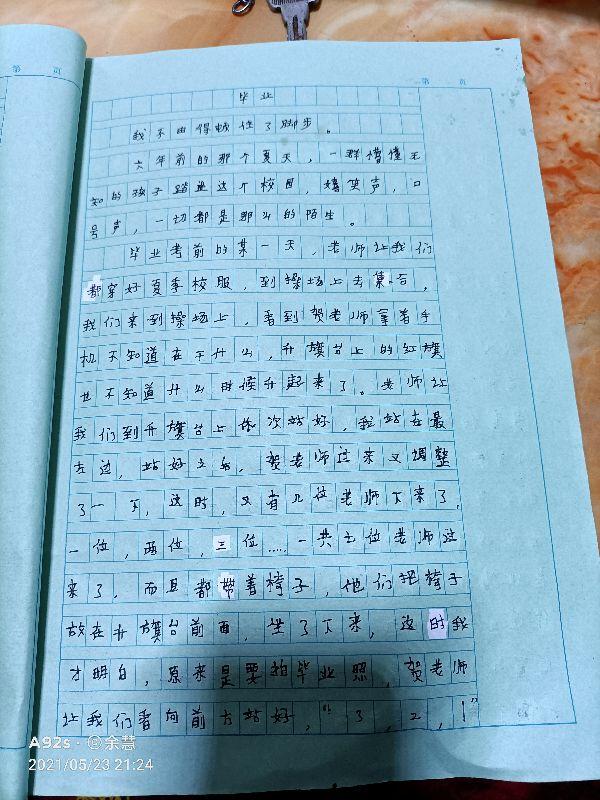 第 页
第 页
毕业
我不由得顿住了脚步。
六年前的那个夏天，一群懵懂无
知的孩子踏进这个校园，嬉笑声，口
号声，一切都是那么的陌生。
毕业考前的某一天，老师让我们
都穿好夏季校服，到操场上去集合，
我们来到操场上，看到贺老师拿着手
机不知道在干什么，升旗台上的红旗
也不知道什么时候升起来了。老师让
我们到升旗台上依次站好，我站在最
左边，站好之后，贺老师过来又调整
了一下，这时，又有几位老师下来了，
一位，两位，三位……一共七位老师过
来了，而且都带着椅子，他们把椅子
放在升旗台前面，坐了下来，这时我
才明白，原来是要拍毕业照，贺老师
让我们看向前方站好，“3，2，1”
A92s · @余慧
2021/05/23 21:24